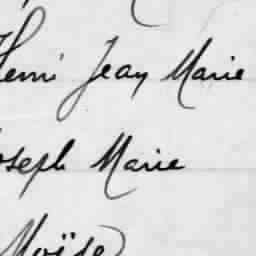 Henri Jean Marie
Joseph Marie
Moïse